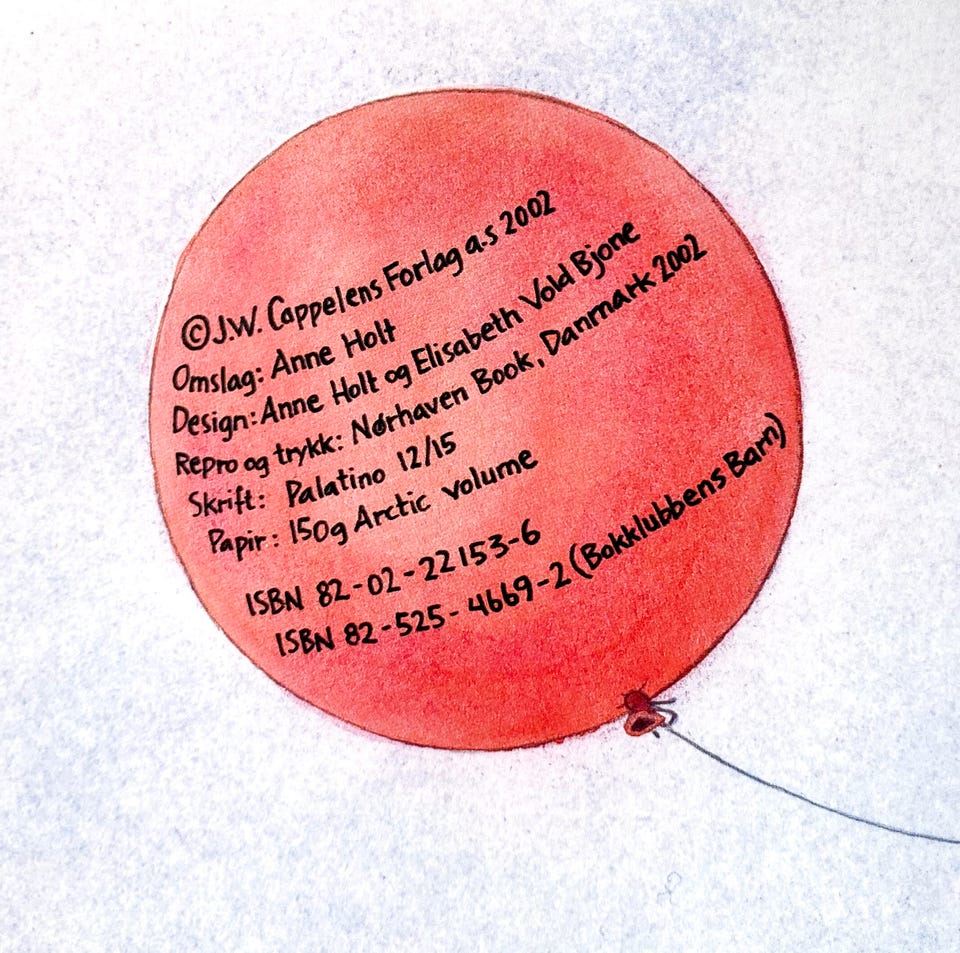 ©J.W. Cappelens Forlag a.s 2002
Omslag: Anne Holt
Design: Anne Holt og Elisabeth Vold Bjone
Repro og trykk: Nørhaven Book, Danmark 2002
Skrift: Palatino 12/15
Papir: 150g Arctic volume
ISBN 82-02-22153-6
ISBN 82-525-4669-2 (Bokklubbens Barn)